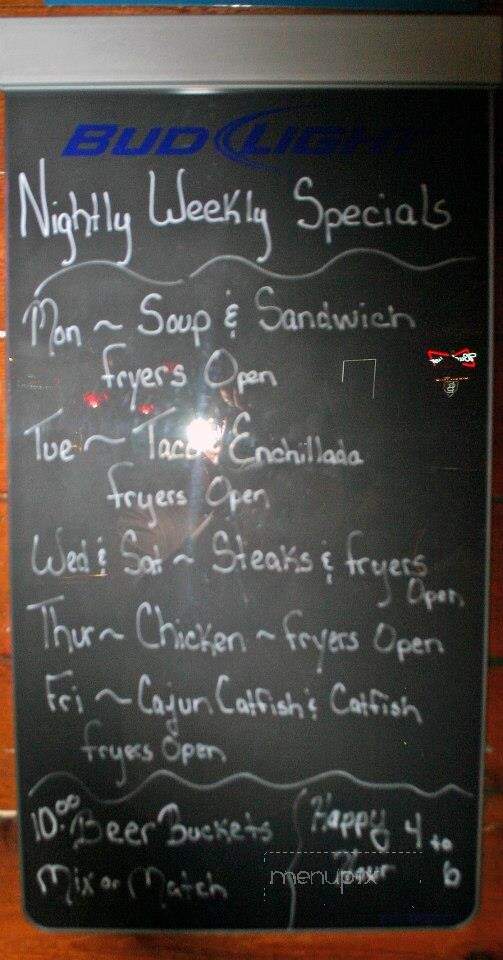 BUD LIGHT
Nightly Weekly Specials
Mon ~ Soup & Sandwich
fryers Open
Tue ~ Taco & Enchillada
fryers Open
Wed & Sat ~ Steaks & fryers
Open
Thur ~ Chicken ~ fryers Open
Fri ~ Cajun Catfish & Catfish
fryers Open
10.00 Beer Buckets
Mix or Match
Happy 4 to
Hour 6
menupix